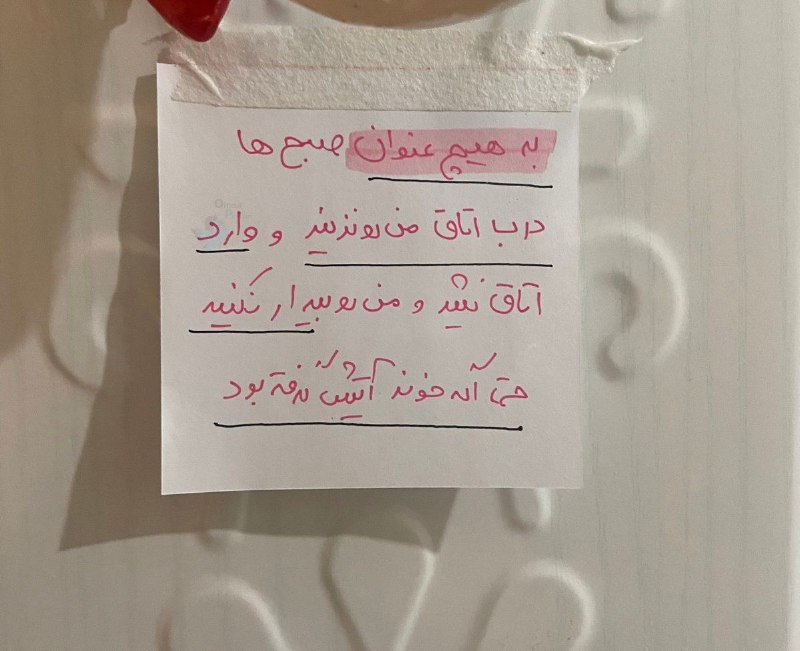 به هیچ عنوان صبح ها
درب اتاق من رو نزنید و وارد
اتاق نشید و من رو بیدار نکنید
حتی اگه خونه آتیش گرفته بود